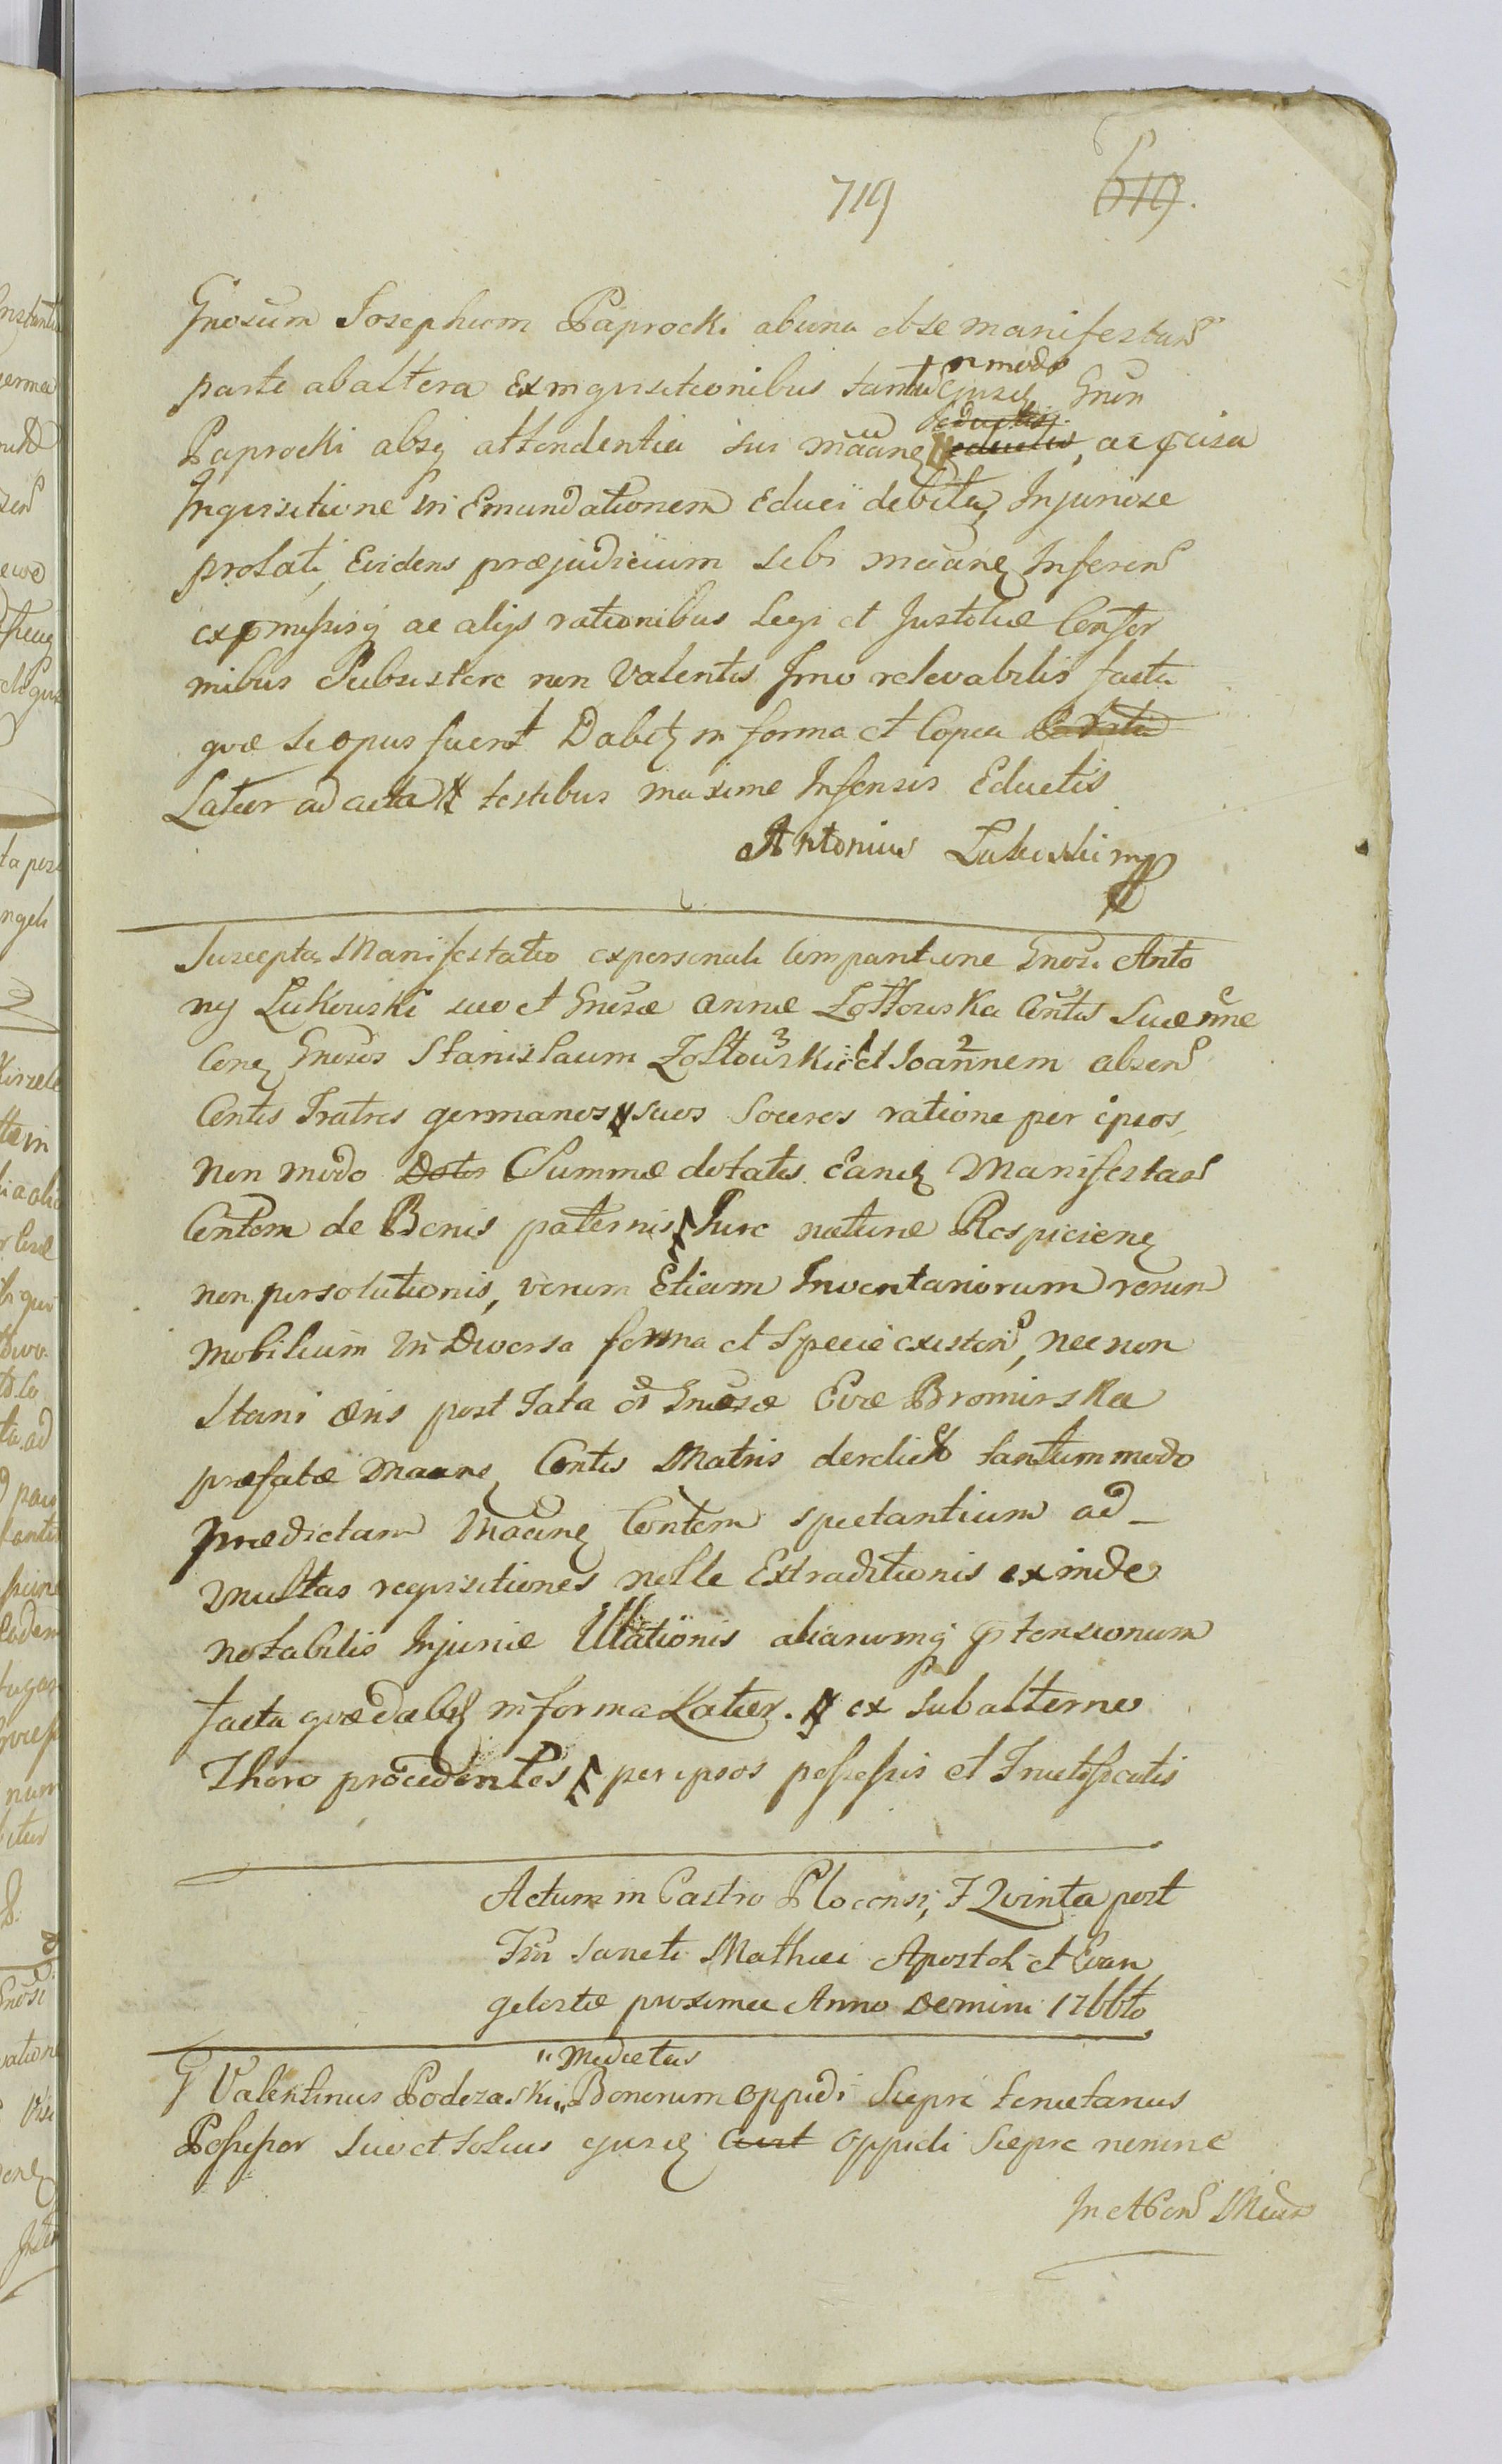 719 619.
Gnosum Josephum Paprocki ab una et se manifestan
parte ab altera ex inquisitionibus tantum modo ejusd Gnen
Paprocki absq attendentia sui maane eductis, ac
Inquisitione in Emundationem Educi debita, Injuriose
prolati, Evidens præjudicium sibi maane Inferen
expmissisq ac alijs rationibus Legi et Justitiæ Confor
mibus Subsistere non Valentis Imo relevabilis facta
quæ si opus fuerit Dabit in forma et Copia
Latior ad acta testibus maxime Infensis Eductis
Antonius Lukoski mp
Suscepta Manifestatio ex personali Comparitione Gnosi Anto
nij Lukowski suo et Gnosæ Annæ Zołtowska Contis Suæ nne
Cong Gnosos Stanislaum Zołtowski 3 et 1 Joannem 2 absen
Contis Fratres germanos suos Soceros ratione per ipsos
non modo Dotis Summæ dotalis eand Manifestan
Contem de Bonis paternis Jure naturæ Respicien
non persolutionis, verum Etiam Inventariorum rerum
mobilium in Diversa forma et Specie existen, nec non
Parati æris post Fata Gnosæ Evæ Bromirska
præfatæ Maane Contis Matris derelicto tantummodo
prædictam Maane Contem spectantium ad
multas requisitiones nolle Extraditionis exinde
notabilis Injuriæ Illationis aliarumq ptensionum
facta quæ dabit in forma Latior. ex subalterno
Thoro procedentes per ipsos possessis et Fructificatis
Actum in Castro Plocensi, F Quinta post
Fm Sancti Mathæi Apostoli et Evan
gelistæ proxima Anno Domini 1766to
G Valentinus Podczaski "Medietatis" Bonorum Oppidi Sieprc tenutarius
Possessor suo et totius ejusd Oppidi Sieprc nomine
In et Con